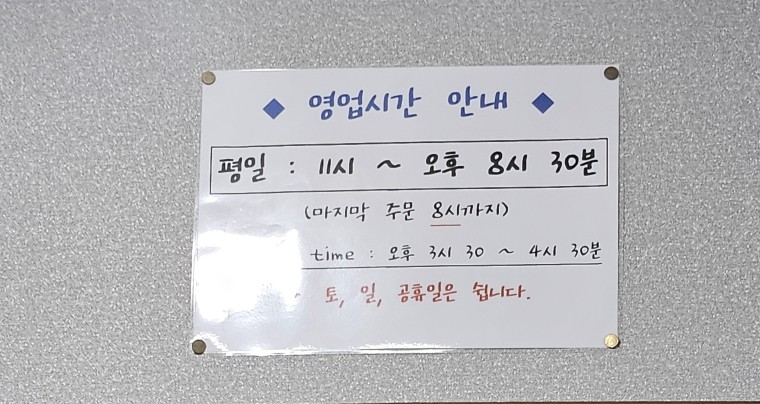 ◆ 영업시간 안내 ◆
평일 : 11시 ~ 오후 8시 30분
(마지막 주문 8시까지)
time : 오후 3시 30 ~ 4시 30분
토, 일, 공휴일은 쉽니다.